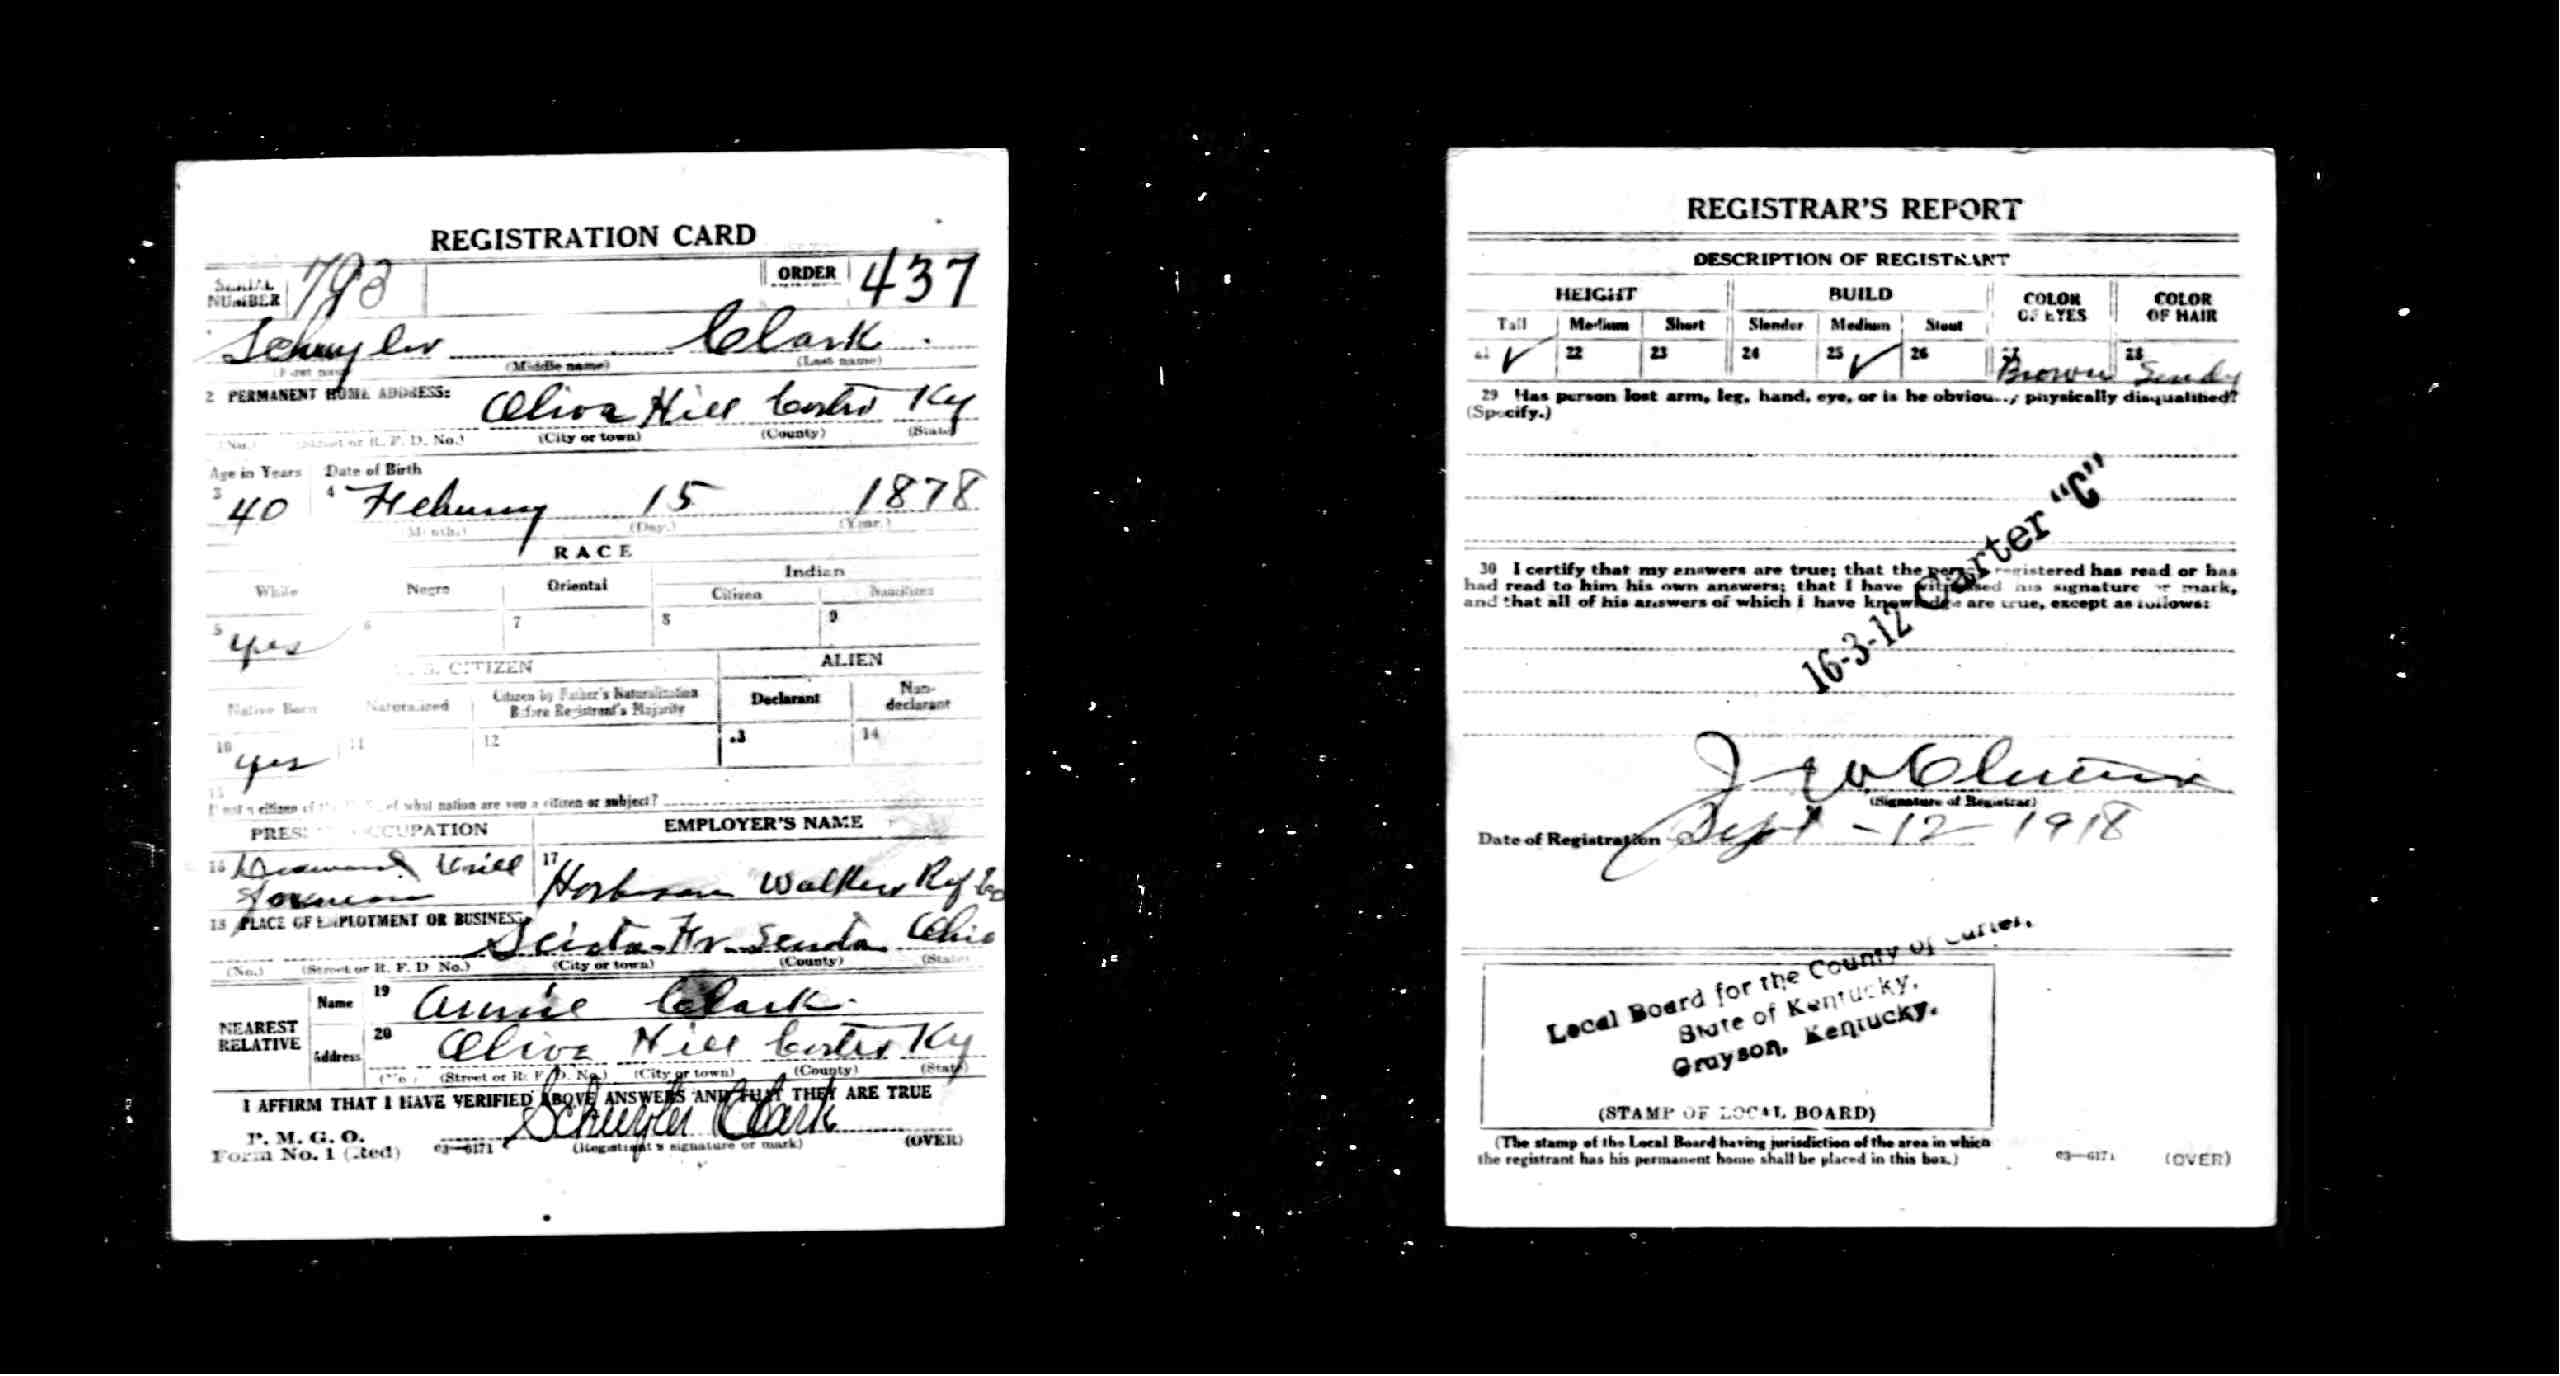 REGISTRATION CARD
SERIAL NUMBER 793 ORDER 437
Schuyler Clark
(First name) (Middle name) (Last name)
2 PERMANENT HOME ADDRESS:
Oliva Hill Carter Ky
(No.) (Street or R. F. D. No.) (City or town) (County) (State)
Age in Years Date of Birth
3 40 4 February 15 1878
(Month.) (Day.) (Year.)
RACE
White Negro Oriental Indian
Citizen Noncitizen
5 yes 6 7 8 9
U. S. CITIZEN ALIEN
Native Born Naturalized Citizen by Father's Naturalization Before Registrant's Majority Declarant Non-declarant
10 yes 11 12 13 14
15
If not a citizen of the U. S., of what nation are you a citizen or subject?
PRESENT OCCUPATION EMPLOYER'S NAME
16 17
Foreman Walker Ref Co
18 PLACE OF EMPLOYMENT OR BUSINESS:
Ohio
(No.) (Street or R. F. D. No.) (City or town) (County) (State)
NEAREST RELATIVE
Name 19 Annie Clark
Address 20 Oliva Hill Carter Ky
(No.) (Street or R. F. D. No.) (City or town) (County) (State)
I AFFIRM THAT I HAVE VERIFIED ABOVE ANSWERS AND THAT THEY ARE TRUE
P. M. G. O.
Form No. 1 (Red) 03—6171 Schuyler Clark
(Registrant's signature or mark) (OVER)
REGISTRAR'S REPORT
DESCRIPTION OF REGISTRANT
HEIGHT BUILD COLOR OF EYES COLOR OF HAIR
Tall Medium Short Slender Medium Stout
21 ✓ 22 23 24 25 ✓ 26 27 Brown 28 Sandy
29 Has person lost arm, leg, hand, eye, or is he obviously physically disqualified?
(Specify.)
30 I certify that my answers are true; that the person registered has read or has
had read to him his own answers; that I have witnessed his signature or mark,
and that all of his answers of which I have knowledge are true, except as follows:
16-3-12 Carter "C"
(Signature of Registrar)
Date of Registration Sept - 12 - 1918
Local Board for the County of Carter,
State of Kentucky,
Grayson, Kentucky.
(STAMP OF LOCAL BOARD)
(The stamp of the Local Board having jurisdiction of the area in which
the registrant has his permanent home shall be placed in this box.)
03—6171 (OVER)